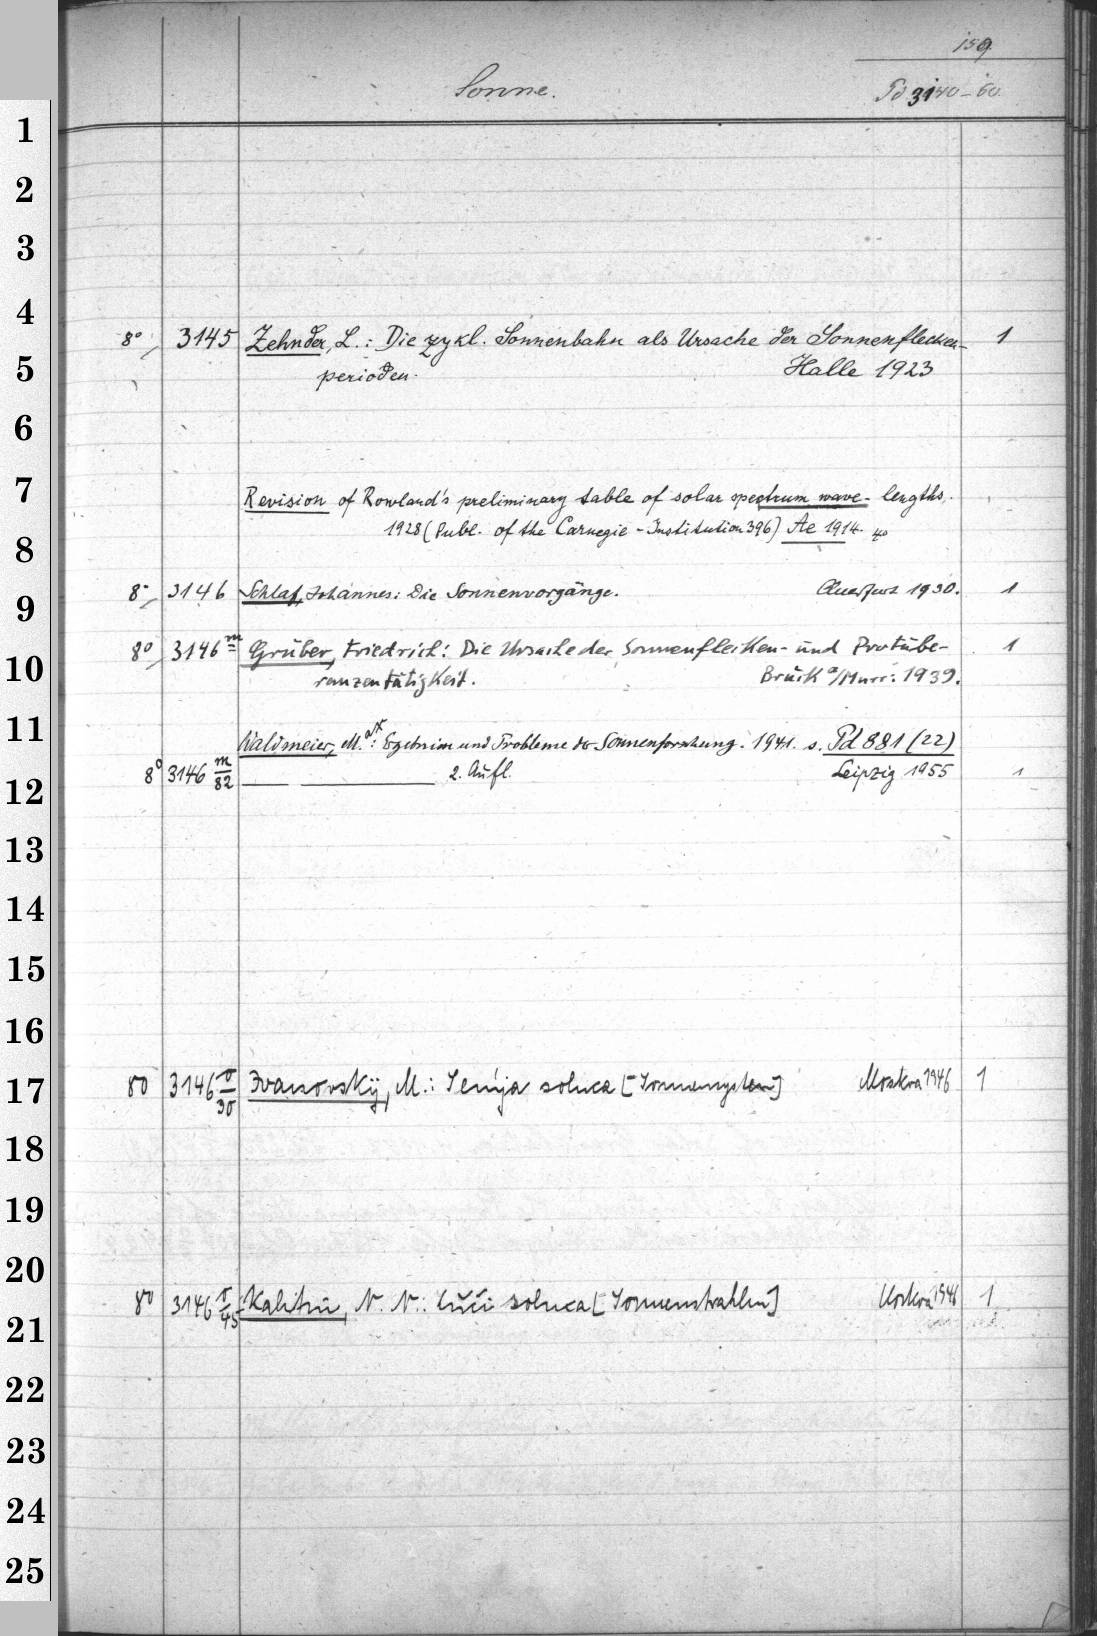 159.
Sonne.
Pd 3140-60.
1
2
3
4
8° 3145 Zehnder, L.: Die zykl. Sonnenbahn als Ursache der Sonnenflecken- 1
5
perioden. Halle 1923
6
7
Revision of Rowland's preliminary table of solar spectrum wave-lengths.
1928 (Publ. of the Carnegie-Institution 396) Ae 1914. 4°
8
8° 3146 Schlaf, Johannes: Die Sonnenvorgänge. Querfurt 1930. 1
9
8° 3146 m Gruber, Friedrich: Die Ursache der Sonnenflecken- und Protube- 1
10
ranzentätigkeit. Bruck a/Murr: 1939.
11
Waldmeier, M.: Ergebnisse und Probleme der Sonnenforschung. 1941. s. Pd 881 (22)
8° 3146 m/82 2. Aufl. Leipzig 1955 1
12
13
14
15
16
17
8° 3146 σ/30 Ivanovskij, M.: Semja solnca [Sonnensystem] Moskva 1946 1
18
19
20
8° 3146 σ/45 Kalitin, N. N.: Luči solnca [Sonnenstrahlen] Moskva 1946 1
21
22
23
24
25